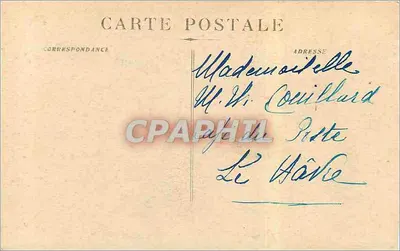 CARTE POSTALE
CORRESPONDANCE
ADRESSE
Mademoiselle
M. Th. Couillard
CPAPHIL
Poste
Le Hâvre